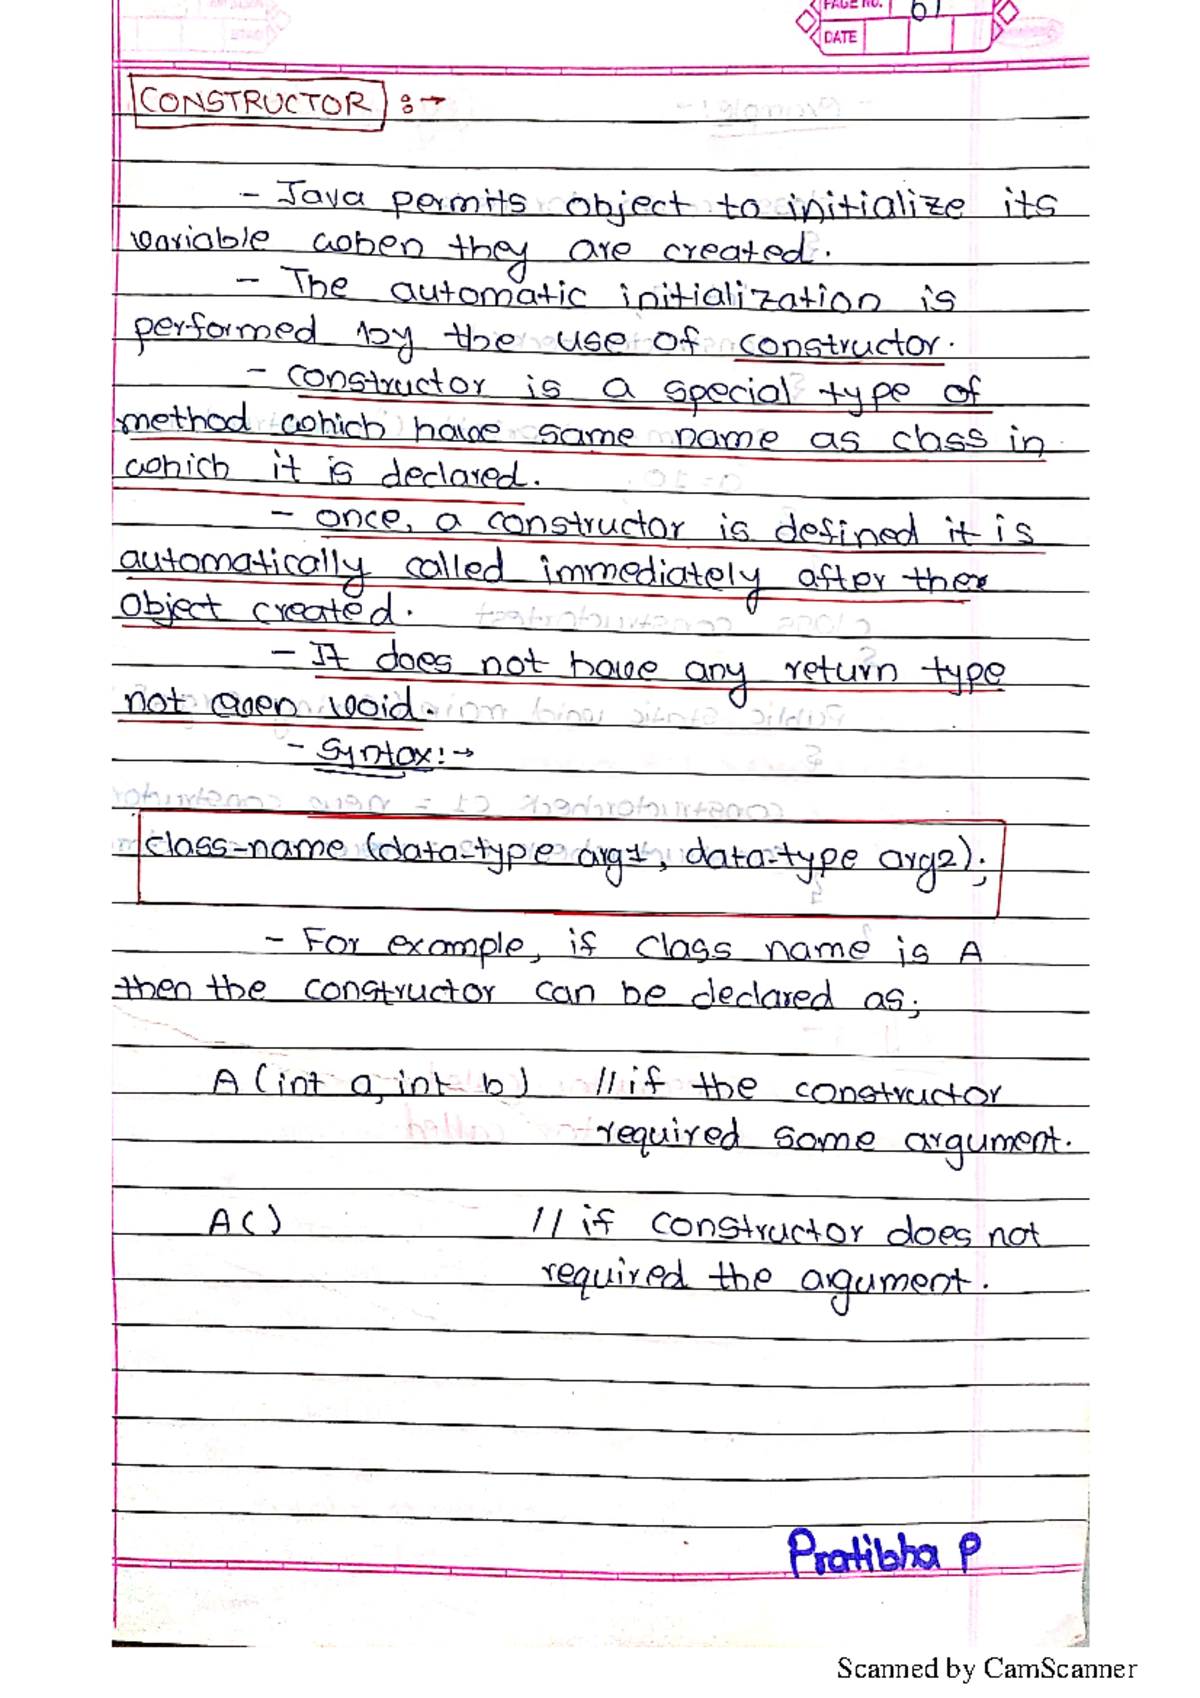 PAGE NO.
DATE
CONSTRUCTOR :→
- Java permits object to initialize its
variable when they are created.
- The automatic initialization is
performed by the use of constructor.
- constructor is a special type of
method which have same name as class in
which it is declared.
- once, a constructor is defined it is
automatically called immediately after the
object created.
- It does not have any return type
not even void.
- Syntax:→
class-name (data-type arg1, data-type arg2);
- For example, if class name is A
then the constructor can be declared as;
A (int a, int b) // if the constructor
required some argument.
A() // if constructor does not
required the argument.
Pratibha P
Scanned by CamScanner